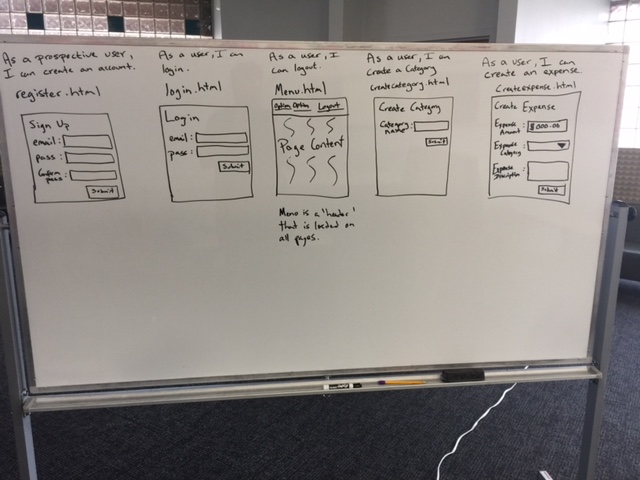 As a prospective user,
I can create an account.
register.html
Sign Up
email:
pass:
Confirm
pass:
Submit
As a user, I can
login.
login.html
Login
email:
pass:
Submit
As a user, I
can logout.
Menu.html
Option Option Logout
Page Content
Menu is a 'header'
that is loaded on
all pages.
As a user, I can
Create a Category
createcategory.html
Create Category
Category:
name
Submit
As a user, I can
create an expense.
Createexpense.html
Create Expense
Expense
Amount:
Expense:
Category
Expense
Description:
Submit